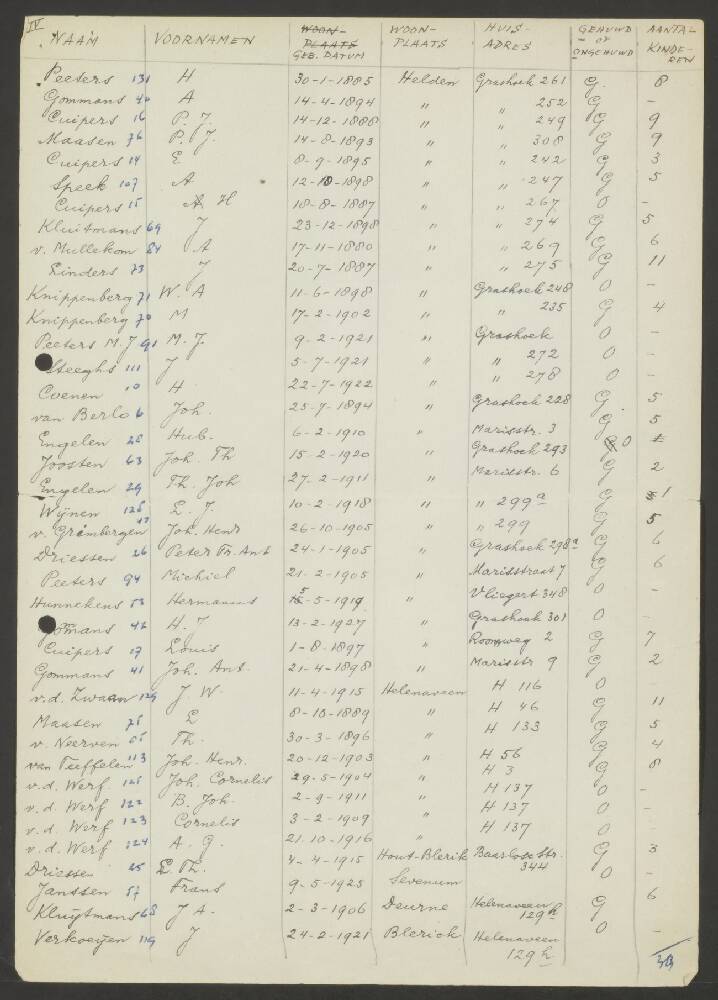 IV
NAAM VOORNAMEN WOON-PLAATS GEB. DATUM WOON-PLAATS HUIS-ADRES GEHUWD OF ONGEHUWD AANTAL KINDEREN
Peeters 131 H 30-1-1885 Helden Grashoek 261 G. 8
Gommans 40 A 14-4-1894 " " 252 G -
Cuipers 16 P. J. 14-12-1888 " " 249 G 9
Maasen 76 P. J. 14-8-1893 " " 308 G 9
Cuipers 14 E 8-9-1895 " " 242 G 3
Speek 107 A 12-10-1898 " " 247 G 5
Cuipers 15 H 18-8-1887 " " 267 O -
Kluitmans 69 J 23-12-1898 " " 274 G 5
v. Mullekom 84 A 17-11-1880 " " 269 G 6
Linders 73 J 20-7-1887 " " 275 G 11
Knippenberg 71 W. A 11-6-1898 " Grashoek 248 O -
Knippenberg 70 M 17-2-1902 " " 235 G 4
Peeters M. J 91 M. J. 9-2-1921 " Grashoek O -
Steeghs 111 J 5-7-1921 " " 272 O -
Coenen 10 H 22-7-1922 " " 278 O -
van Berlo 6 Joh. 25-7-1894 " Grashoek 228 G 5
Engelen 28 Hub. 6-2-1910 " Marisstr. 3 G. 5
Joosten 63 Joh. Th 15-2-1920 " Grashoek 293 O
Engelen 29 Th. Joh 27-2-1911 " Marisstr. 6 G 2
Wijnen 128 L. J. 10-2-1918 " " 299a G 1
v. Grambergen 47 Joh. Henr 26-10-1905 " " 299 G 5
Driessen 26 Peter Fr. Ant 24-1-1905 " Grashoek 298a G 6
Peeters 94 Michiel 21-2-1905 " Marisstraat 7 G 6
Hunnekens 53 Hermanus 5-5-1919 " Vliegert 348 O -
Gommans 42 H. J 13-2-1927 " Grashoek 301 O -
Cuipers 17 Louis 1-8-1897 " Roomweg 2 G 7
Gommans 41 Joh. Ant. 21-4-1898 " Marisstr 9 G 2
v.d. Zwaan 129 J W 11-4-1915 Helenaveen H 116 O -
Maasen 75 L 8-10-1889 " H 46 G 11
v. Neerven 85 Th. 30-3-1896 " H 133 G 5
van Tuffelen 113 Joh. Henr. 20-12-1903 " H 56 G 4
v.d. Werf 125 Joh. Cornelis 29-5-1904 " H 3 G 8
v.d. Werf 122 B. Joh. 2-9-1911 " H 137 O -
v.d. Werf 123 Cornelis 3-2-1909 " H 137 O
v.d. Werf 124 A. G. 21.10-1916 " H 137 O -
Driessen 25 L. Th. 4-4-1915 Hout-Blerik Baarlose Str. 344 G 3
Janssen 57 Frans 9-5-1925 Sevenum O -
Kluytmans 68 J A. 2-3-1906 Deurne Helenaveen 129h G 6
Verkoeijen 119 J 24-2-1921 Blerick Helenaveen 129h O -